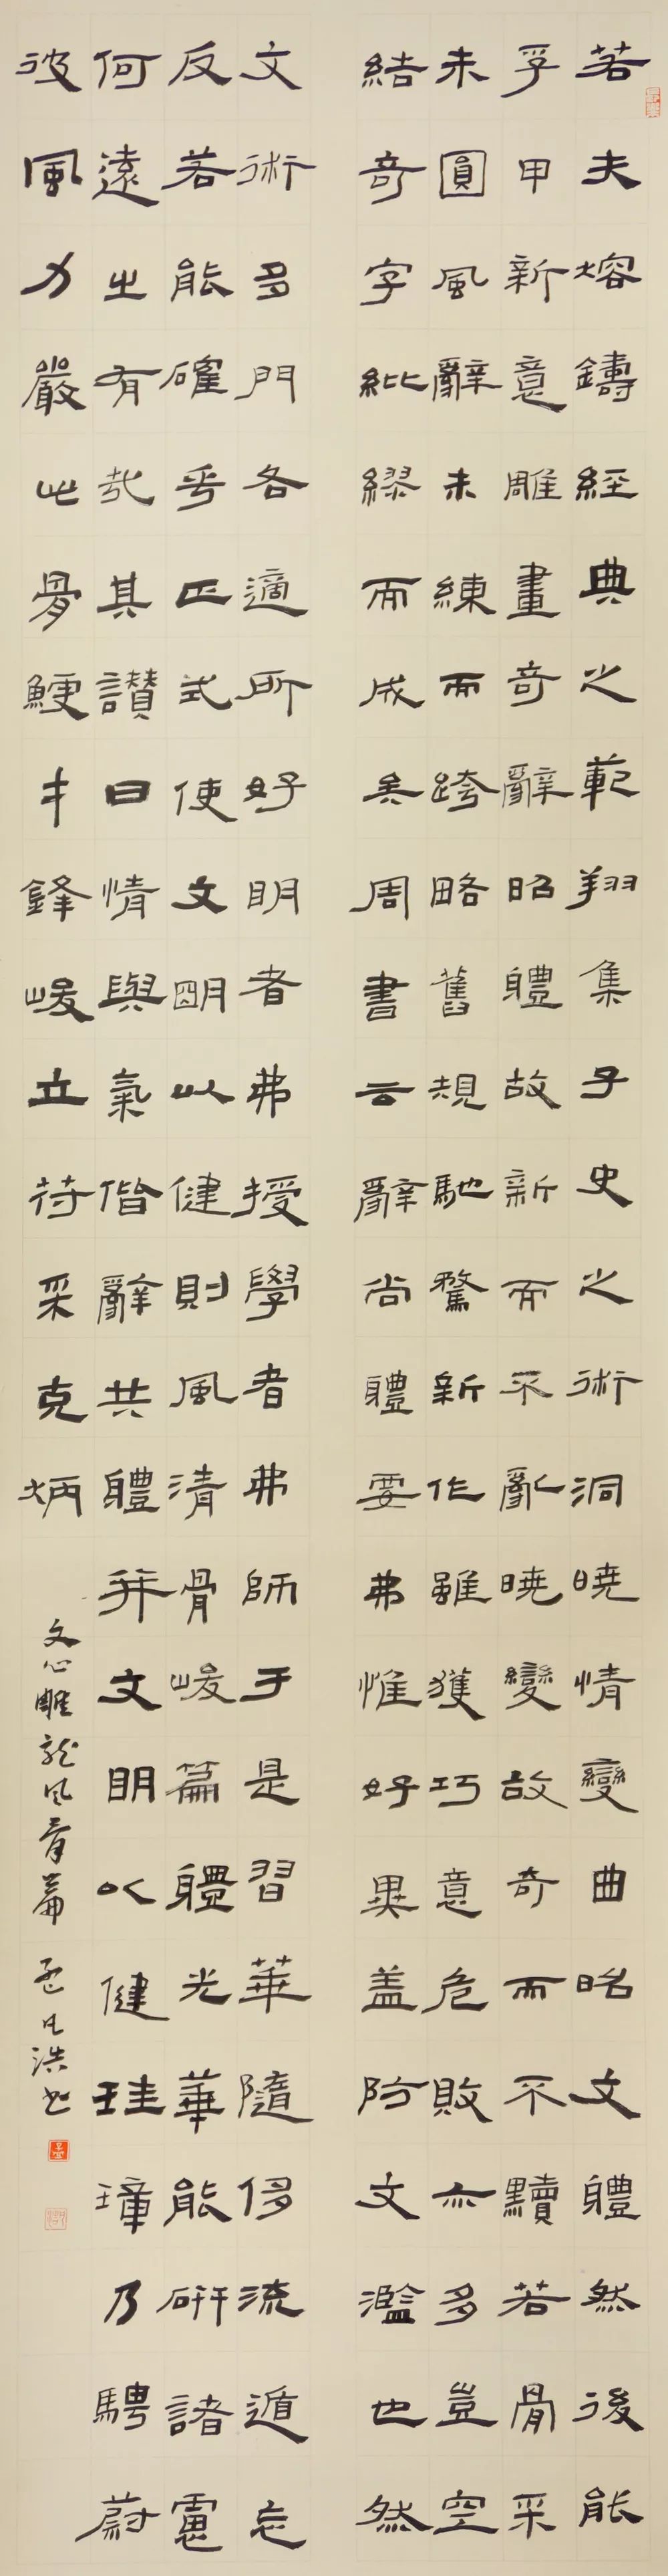 若夫熔鑄經典之範翔集子史之術洞曉情變曲昭文體然後能
孚甲新意雕畫奇辭昭體故新而不亂曉變故奇而不黷若骨采
未圓風辭未練而跨略舊規馳騖新作雖獲巧意危敗亦多豈空
結奇字紕繆而成矣周書云辭尚體要弗惟好異盖防文濫也然
文術多門各適所好明者弗授學者弗師于是習華隨侈流遁忘
反若能確乎正式使文明以健則風清骨峻篇體光華能研諸慮
何遠之有哉其讚曰情與氣偕辭共體并文明以健珪璋乃騁蔚
彼風力嚴此骨鯁才鋒峻立符采克炳
文心雕龍風骨篇 孟凡浩書